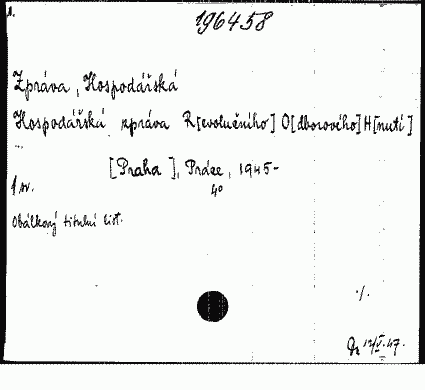 1.
196458
Zpráva, Hospodářská
Hospodářská zpráva R[evolučního] O[dborového] H[nutí]
...
[Praha], Práce, 1945-
1 sv.
4°
Obálkový titulní list.
./.
12/V.47.